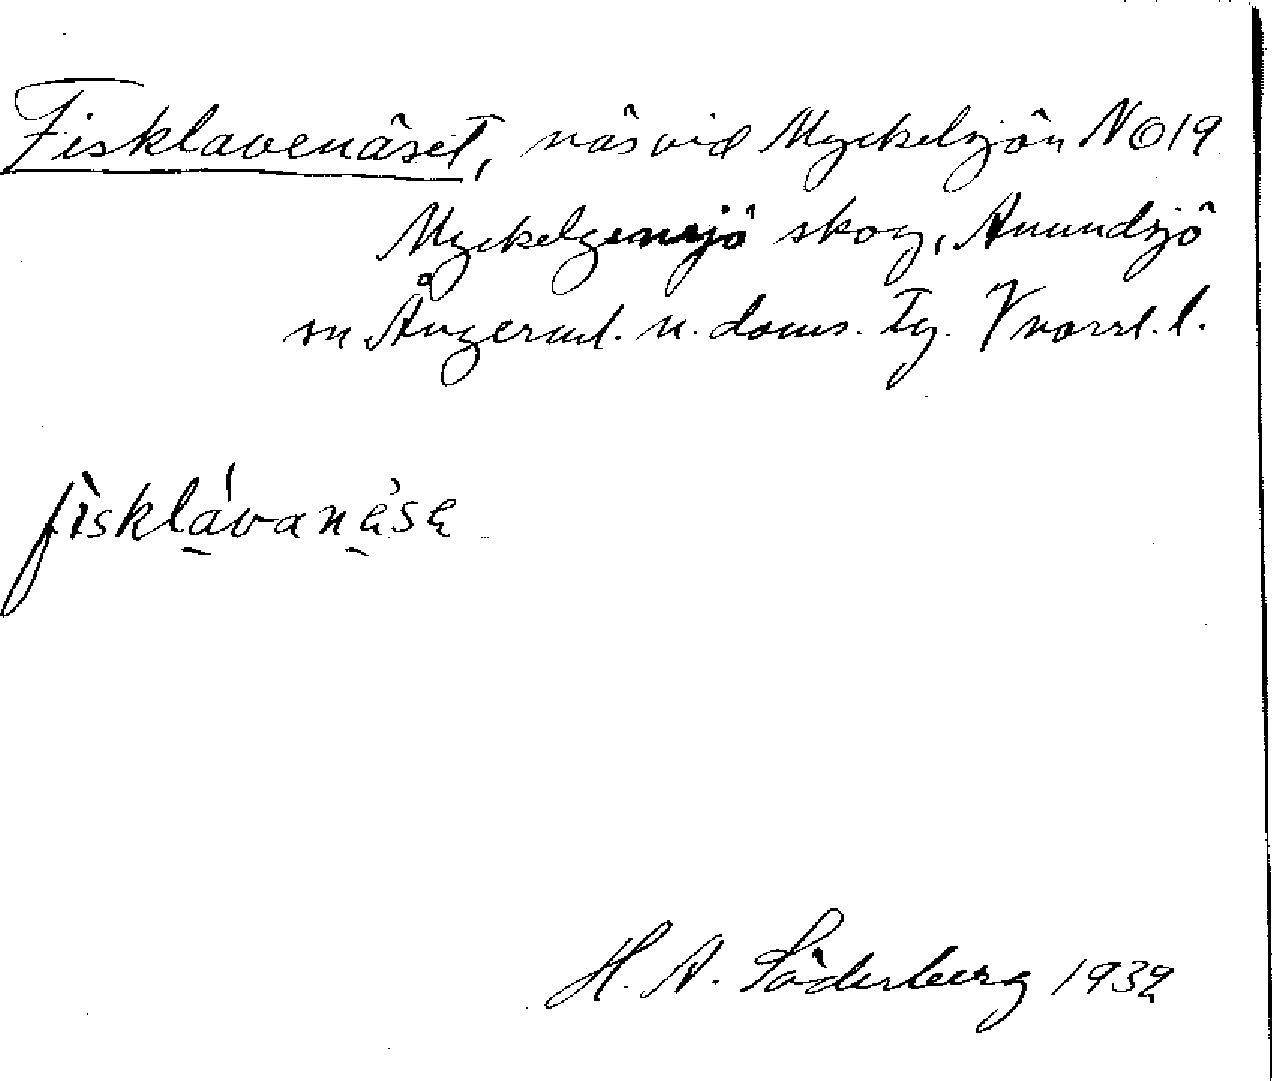 Fisklavenäset, näs vid Myckelsjön NO 19
Myckelgensjö skog, Anundsjö
sn Ångerml. n. doms. Tg. Vnorrl. l.
fìsklávanäsa
H. A. Söderberg 1932